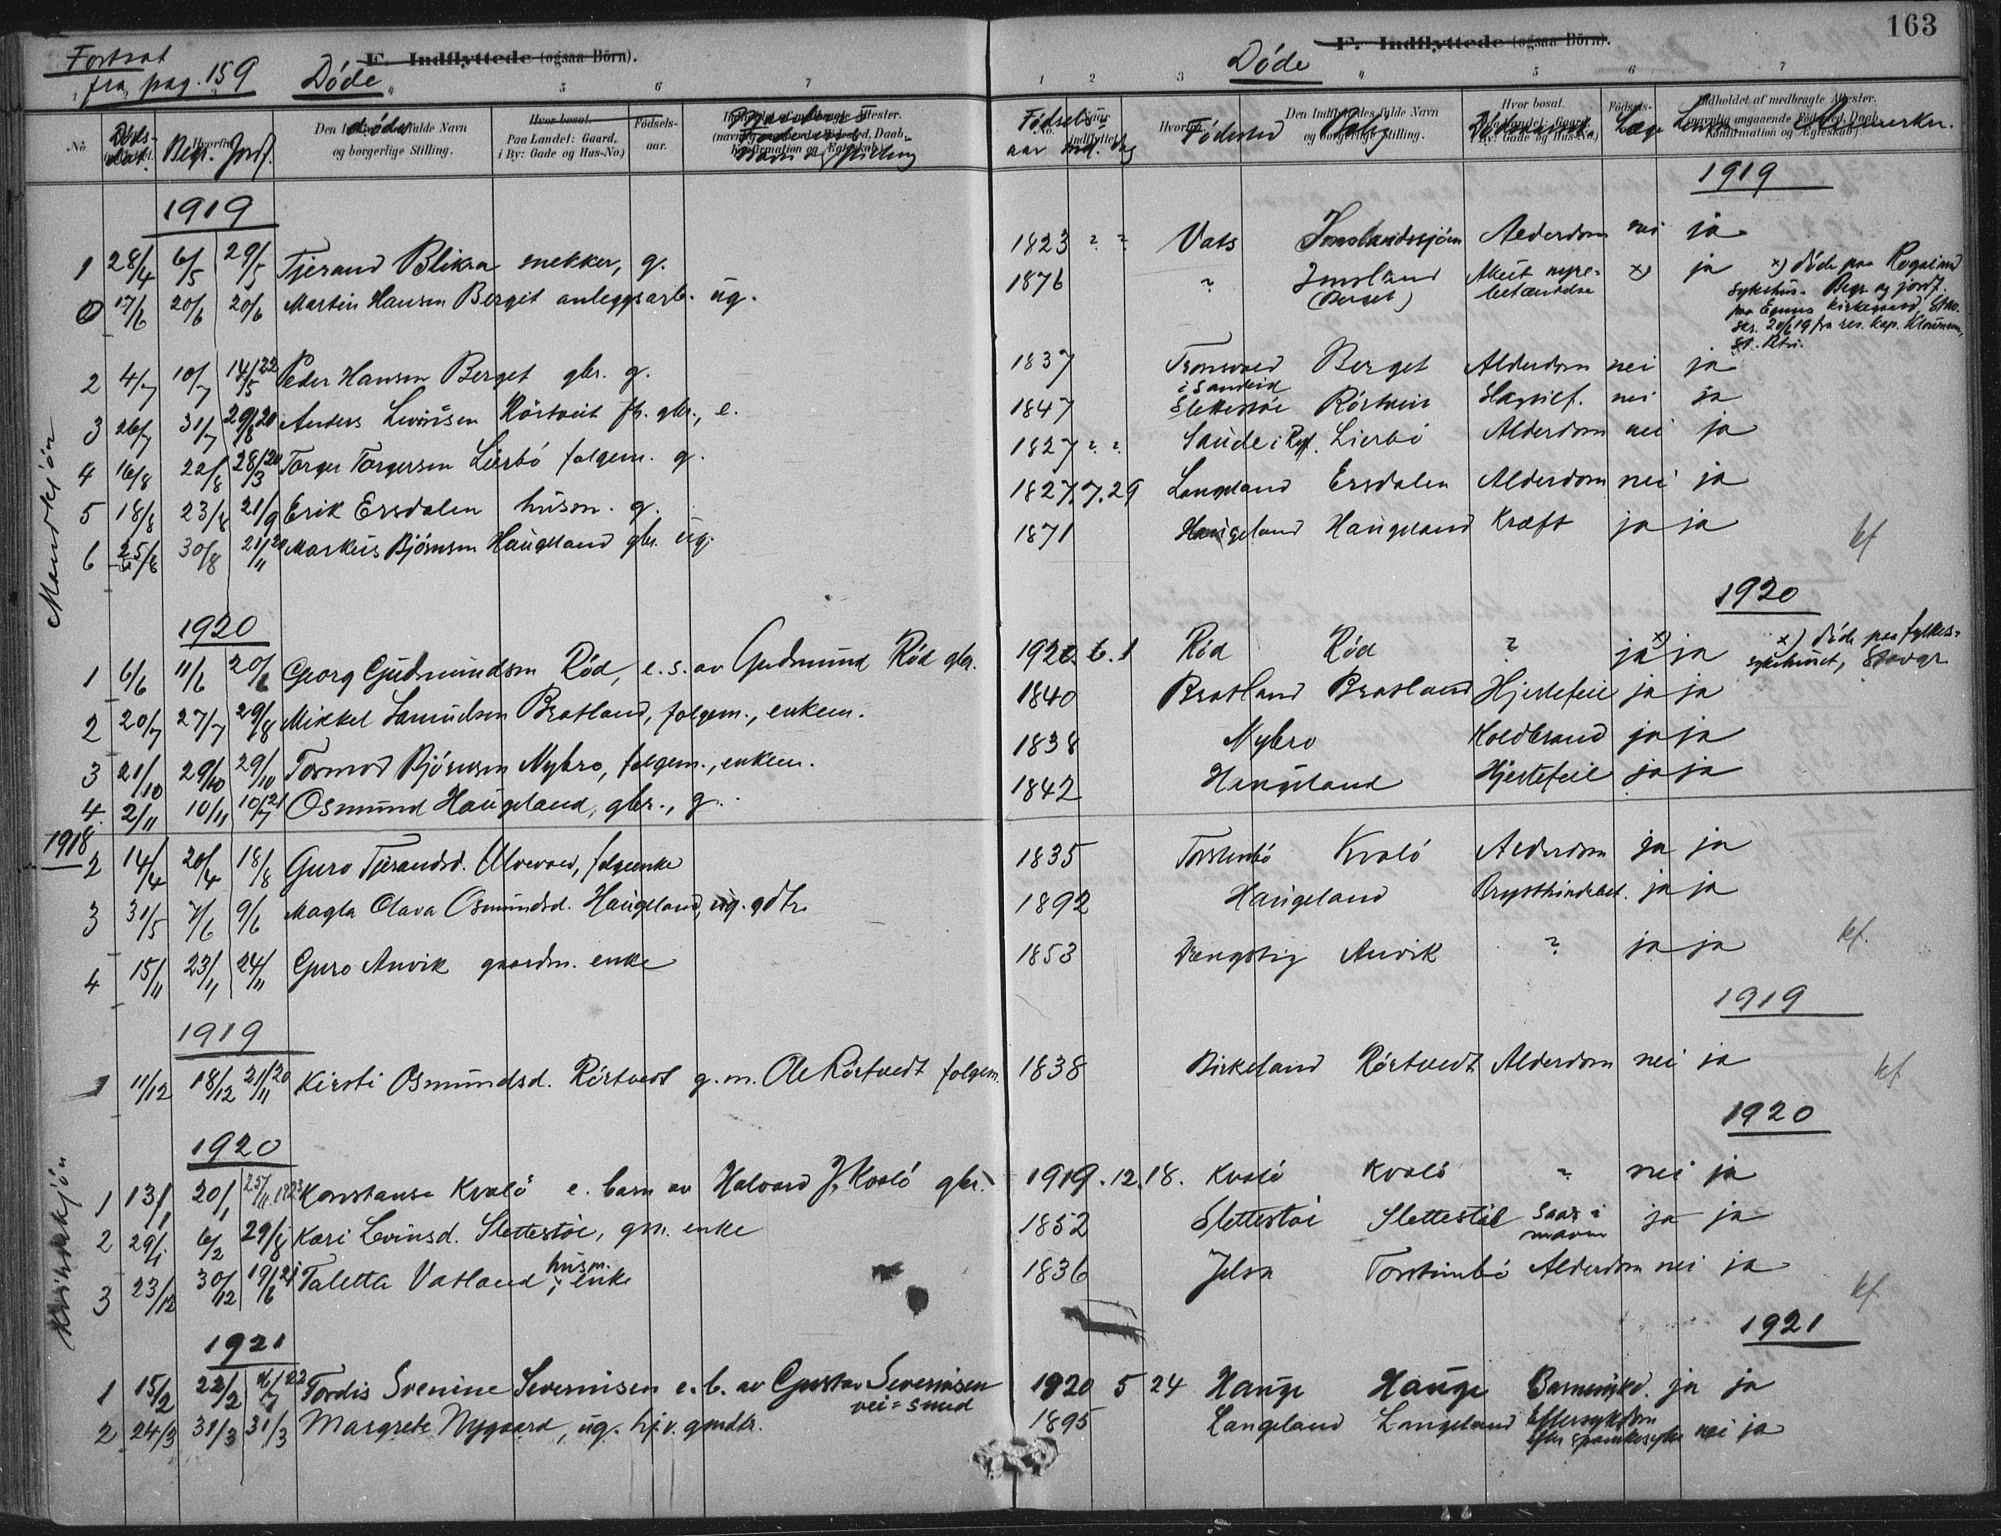 163
Fortsat
fra pag. 159
Døde
F. Indflyttede (ogsaa Børn).
Døde
F. Indflyttede (ogsaa Børn).
No Begr. Jordf. Den Indflyttedes fulde Navn og borgerlige Stilling. Hvor bosat. Paa Landet: Gaard. i By: Gade og Hus-No.) Fødsels-aar.
Fødsels aar md. dag Fødested Hvor bosat. Læge Anmerkn.
Mandkjøn
1919
1919
1 28/4 6/5 29/5 Tjerand Blikra snekker, g. 1823 ? ? Vats Imslandssjøen Alderdom nei ja
0 17/6 20/6 20/6 Martin Hansen Berget anleggsarb. ug. 1876 " Imsland (Berget) Akut nyrebetændelse x) ja
x) døde paa Rogaland sykehus. Begr. og jordf. paa Egenes kirkegaard, 20/6 19 fra res. kap.
2 4/7 10/7 14/5 22 Peder Hansen Berget gbr. g. 1837 Tronsvaed i Sandeid Berget Alderdom nei ja
3 26/7 31/7 29/8 20 Anders Levinsen Rörtveit fh. gbr., e. 1847 Slettestøe Rörtveit nei ja
4 16/8 22/8 28/3 20 Torger Torgersen Lierbø folgem. g. 1827 ? ? Saude i Ryf. Lierbø Alderdom nei ja
5 18/8 23/8 21/9 Erik Ersdalen husm. g. 1827.7.29 Langeland Ersdalen Alderdom nei ja
6 25/8 30/8 21/11 20 Markus Bjørnsen Haugeland gbr. ug. 1871 Haugeland Haugeland Kræft ja ja
kf
1920
1920
1 6/6 11/6 20/6 Georg Gudmundsen Rød, e. s. av Gudmund Rød gbr. 1920.6.1 Rød Rød ? ja x) ja x) døde paa fylkessykehuset, Stavgr
2 20/7 27/7 29/8 Mikkel Samuelsen Bratland, folgem., enkem. 1840 Bratland Bratland Hjertefeil ja ja
3 21/10 29/10 29/10 Tormod Bjørnsen Nybro, folgem., enkem. 1838 Nybro Koldbrand ja ja
4. 2/11 10/11 10/7 21 Osmund Haugeland, gbr., g. 1842 Haugeland Hjertefeil ja ja
Kvindekjøn
1918
2 14/4 20/4 18/8 Guro Tjerandsd. Ulvevaed, folgeenke 1835 Torstenbø Kvalø Alderdom ja ja
3 31/5 7/6 9/6 Magla Olava Osmundsd. Haugeland, ug. gdtr. 1892 Haugeland Brysthindebet. ja ja
4 15/11 23/11 24/11 Guro Anvik gaardm. enke 1853 Vengstig Anvik ? ja ja
kf.
1919
1919
1 11/12 18/12 21/11 20 Kirsti Osmundsd. Rörtvedt g. m. Ole Rörtvedt folgem. 1838 Birkeland Rörtvedt Alderdom nei ja
kf.
1920
1920
1 13/1 20/1 25/11. 1923 Konstanse Kvalø e. barn av Halvard J. Kvalø gbr. 1919.12.18. Kvalø Kvalø ? nei ja
2 29/1 6/2 29/8 Kari Levinsd. Slettestøe, gm. enke 1852 Slettestøe Slettestøe Saar i maven ja ja
3 23/12 30/12 19/6 21 Taletta Vatland husm. enke 1836 Jelsa Torstenbø Alderdom nei ja
kf.
1921
1921
1 15/2 22/2 4/7 22 Tordis Svenine Severinsen e. b. av Gustav Severinsen 1920 5 24 Hauge Hauge ja ja
2 24/3 31/3 31/3 Margrete Nygaard, ug. hj. v. gmdtr. 1895 Langeland Langeland Eftersykdom efter spanskesyke nei ja